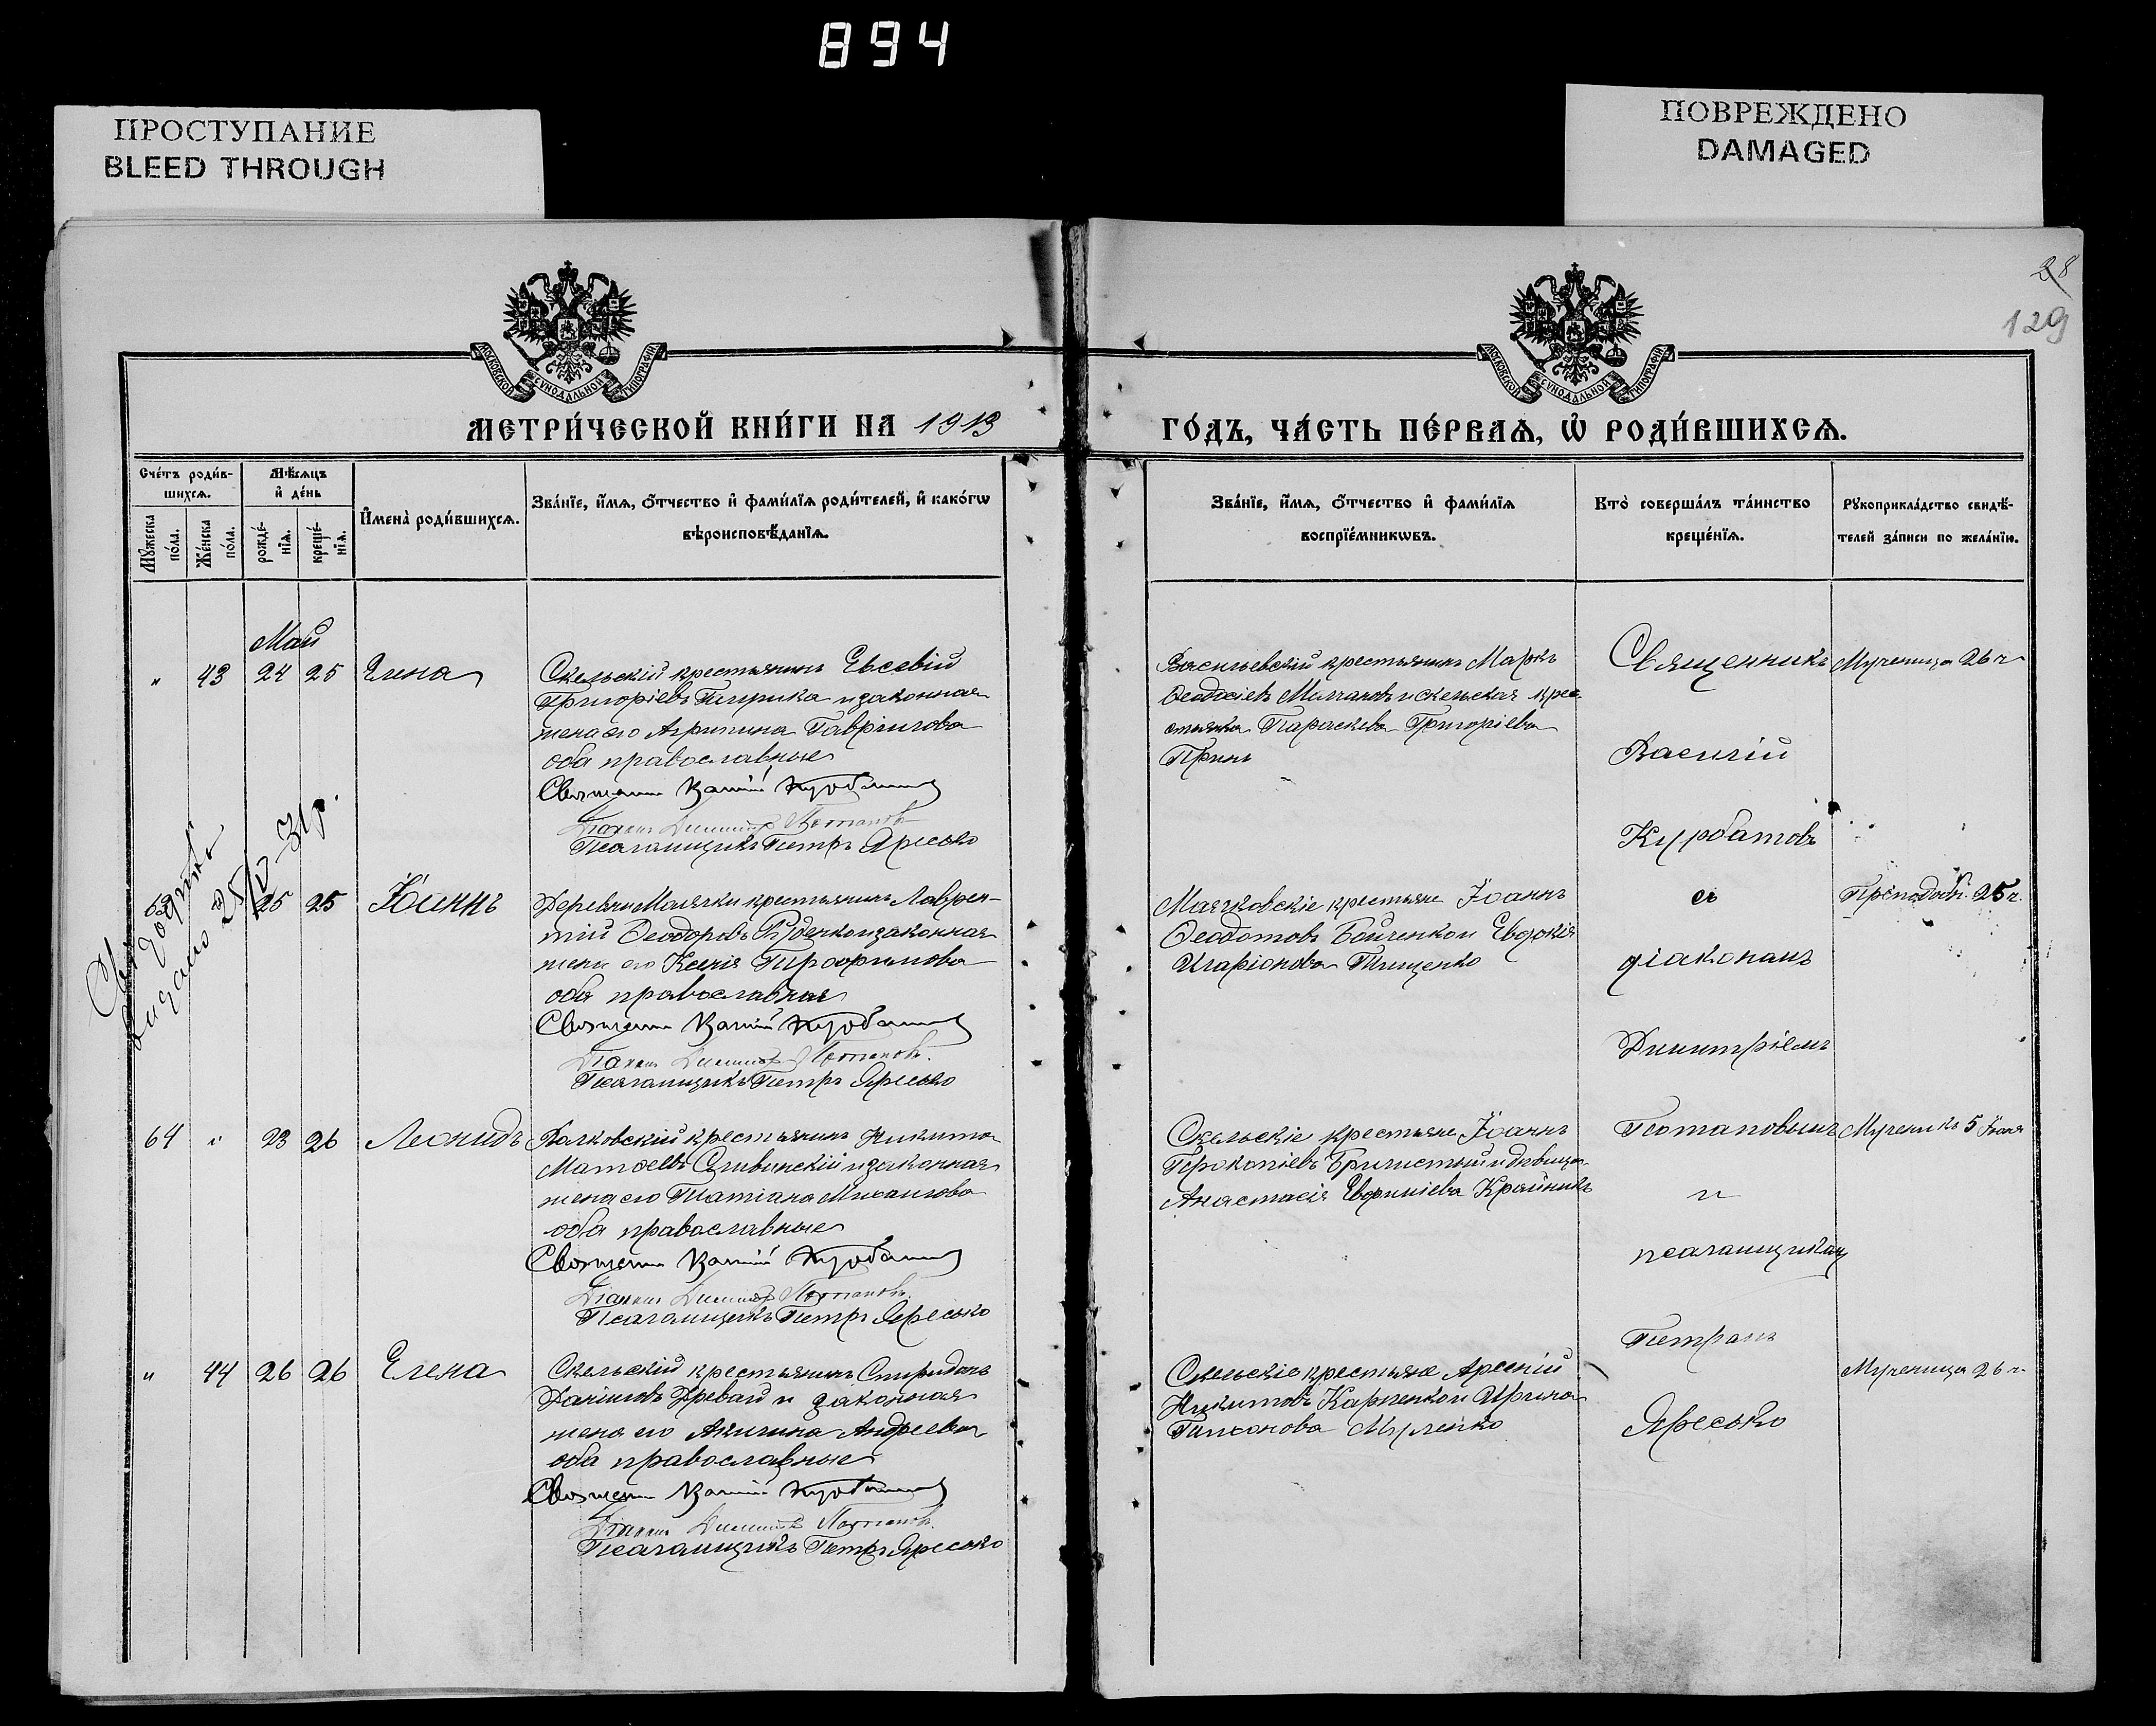 894
ПРОСТУПАНИЕ
BLEED THROUGH
ПОВРЕЖДЕНО
DAMAGED
28
129
МОСКОВСКОЙ СѴНОДАЛЬНОЙ ТИПОГРАФІИ
МОСКОВСКОЙ СѴНОДАЛЬНОЙ ТИПОГРАФІИ
МЕТРИ́ЧЕСКОЙ КНИ́ГИ НА 1913
ГО́ДЪ, ЧА́СТЬ ПЕ́РВАѦ, Ѡ РОДИ́ВШИХСѦ.
Сче́тъ роди́в-
шихсѧ.
Мꙋ́жеска
по́ла.
Же́нска
по́ла.
Мѣ́сѧцъ
и҆ де́нь
рожде́-
нїѧ.
креще́-
нїѧ.
И҆мена̀ роди́вшихсѧ.
Зва́нїе, и҆́мѧ, ѻ҆́тчество и҆ фами́лїѧ роди́телей, и҆ како́гѡ
вѣроисповѣ́данїѧ.
Зва́нїе, и҆́мѧ, ѻ҆́тчество и҆ фами́лїѧ
воспрїе́мникѡвъ.
Кто̀ соверша́лъ та́инство
креще́нїѧ.
Рꙋкоприкла́дство свидѣ́-
телей за́писи по жела́нїю.
Май
" 43 24 25 Елена
Скельскій крестьянинъ Евсевій
Григоріевъ и законная
жена его Агрипина Гавріилова
оба православные
Священникъ Василій Курбатовъ
Діаконъ Димитрій Потаповъ
Псаломщикъ Петръ Яресько
Васильевскій крестьянинъ Маркъ
и скельская кре-
стьянка Параскева Григоріева
Священникъ
Василій
Курбатовъ
съ
діакономъ
Димитріемъ
Потаповымъ
и
псаломщикомъ
Петромъ
Яресько
Мученица 26 ч.
25 25 Іоаннъ
Деревни Маячки крестьянинъ Лаврен-
тій Ѳеодоровъ и законная
жена его Ксенія Трофимова
оба православные
Священникъ Василій Курбатовъ
Діаконъ Димитрій Потаповъ.
Псаломщикъ Петръ Яресько
Маячковскіе крестьяне Іоаннъ
Ѳеодотовъ Бойченко и Евдокія
Иларіонова Тищенко
Преподобн. 25 ч.
64 " 23 26 Леонидъ
Валковскій крестьянинъ Никита
Матѳеевъ Сливинскій и законная
жена его Татіана Михаилова
оба православные
Священникъ Василій Курбатовъ
Діаконъ Димитрій Потаповъ.
Псаломщикъ Петръ Яресько
Скельскіе крестьяне Іоаннъ
Прокопіевъ и дѣвица
Анастасія Евфиміева Крайникъ
Мученикъ 5 Іюня
" 44 26 26 Елена
Скельскій крестьянинъ Спиридонъ
Даніиловъ и законная
жена его Акилина Андреева
оба православные
Священникъ Василій Курбатовъ
Діаконъ Димитрій Потаповъ.
Псаломщикъ Петръ Яресько
Скельскіе крестьяне Арсеній
Никитовъ Карпенко и Ирина
Тихонова
Мученица 26 ч.